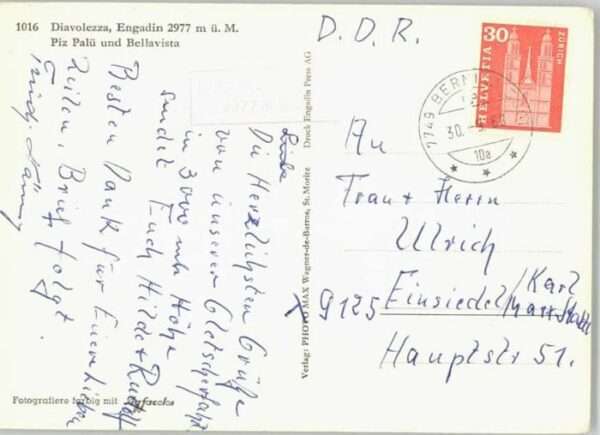 1016 Diavolezza, Engadin 2977 m ü. M.
Piz Palü und Bellavista
D. D. R.
30
ZÜRICH
HELVETIA
7749 BERN
30.
10a
Die Herzlichsten Grüße
von unserer Gletscherfahrt
in 3000 mtr Höhe
sendet Euch Hilde + Rudolf
Besten Dank für Euere lieben
Zeilen, Brief folgt.
An
Frau + Herrn
Ulrich
9125 Einsiedel / Karl
Marx Stadt
Hauptstr 51.
Verlag: PHOTO MAX Wagner-de-Barros, St. Moritz Druck Engadin Press AG
Fotografiere farbig mit Agfacolor